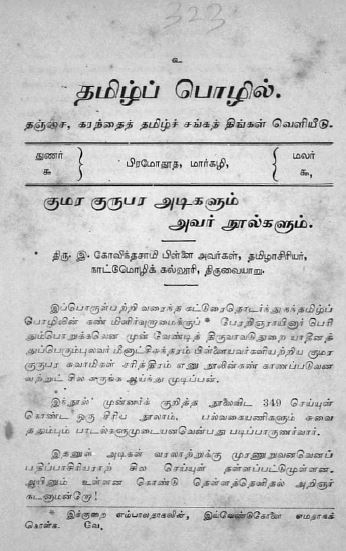 323
உ
தமிழ்ப் பொழில்.
தஞ்சை, கரந்தைத் தமிழ்ச் சங்கத் திங்கள் வெளியீடு.
துணர் } பிரமோதூத, மார்கழி, { மலர்
௯ ௯,
குமர குருபர அடிகளும்
அவர் நூல்களும்.
திரு. இ. கோவிந்தசாமி பிள்ளை அவர்கள், தமிழாசிரியர்,
நாட்டுமொழிக் கல்லூரி, திருவையாறு.
இப்பொருள்பற்றி வரைந்த கட்டுரைதொடர்ந்து
பொழிலின் கண் மிளிர்வருமைக்குப் * பேரறிஞராயினார் பெரி
தும்பொறுக்கவென முன் வேண்டித் திருவாவடுதுறை யாதீனத்
துப்பெரும்புலவர் மீனாட்சிசுந்தரம் பிள்ளையவர்களியற்றிய குமர
குருபர சுவாமிகள் சரித்திரம் எனு நூலின்கண் காணப்படுவன
வற்றுட் சில சுருங்க ஆய்ந்து முடிப்பன்.
இந்நூல் முன்னர்க் குறித்த நூலைவிட 349 செய்யுள்
கொண்ட ஒரு சிரிய நூலாம். பல்வகையணிகளும் சுவை
ததும்பும் பாடல்களுமுடையனவென்பது படிப்பாருணர்வார்.
இதனுள் அடிகள் வரலாற்றுக்கு முரணுறுவனவெனப்
பதிப்பாசிரியராற் சில செய்யுள் தள்ளப்பட்டுமுள்ளன.
ஆயினும் உள்ளன கொண்டு தெள்ளத்தெளிதல் அறிஞர்
கடனுமன்றோ!
* இக்குறை எம்பாலதாகலின், இவ்வேண்டுகோளை எமதாகக்
கொள்க. வே.